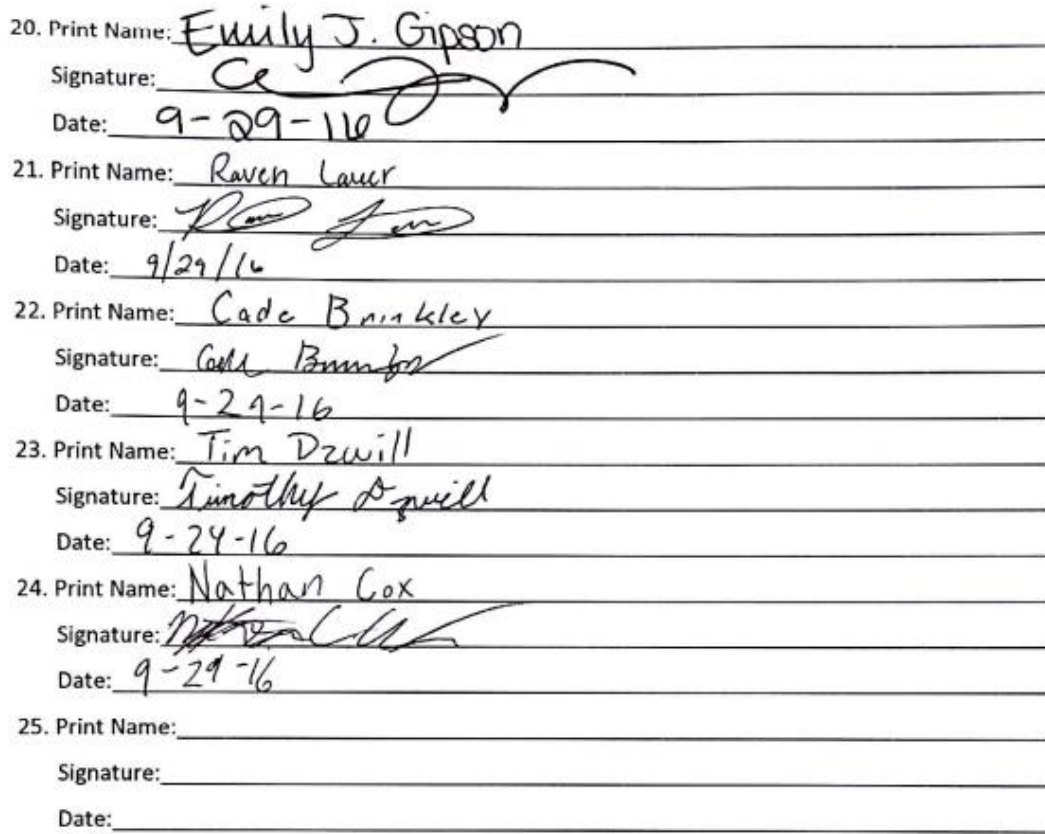 20. Print Name: Emily J. Gipson
Signature:
Date: 9-29-16
21. Print Name: Raven Lauer
Signature:
Date: 9/29/16
22. Print Name: Cade Brinkley
Signature:
Date: 9-29-16
23. Print Name: Tim Dzwill
Signature: Timothy Dzwill
Date: 9-29-16
24. Print Name: Nathan Cox
Signature:
Date: 9-29-16
25. Print Name:
Signature:
Date: